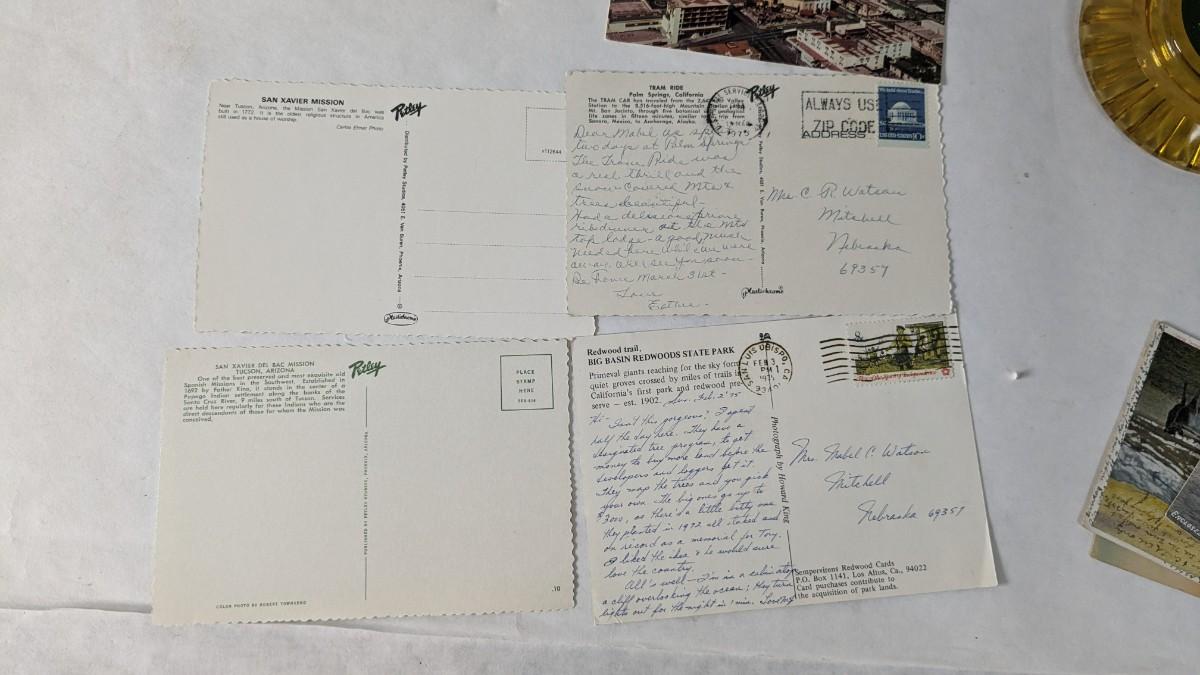 SAN XAVIER MISSION
Near Tucson, Arizona, the Mission San Xavier del Bac was
built in 1772. It is the oldest religious structure in America
still used as a house of worship.
Carlos Elmer Photo
Petley
Distributed by Petley Studios, 4051 E. Van Buren, Phoenix, Arizona
plastichrome
TRAM RIDE
Palm Springs, California
The TRAM CAR has traveled from the Valley
Station to the 8,516-foot-high Mountain Station
Mt. San Jacinto, through five botanical
life zones in fifteen minutes, similar trip from
Sonora, Mexico, to Anchorage, Alaska.
Petley
1975
ALWAYS USE
ZIP CODE
ADDRESS
10c
Dear Mabel We spent
two days at Palm Springs
The Tram Ride was
a real thrill and the
snow covered Mts &
trees beautiful-
Had a delicious prime
rib dinner at the Mts
top lodge - a good much
needed here while we were
away. Will see you soon-
Be home March 31st-
Love
Esther-
Petley Studios, 4051 E. Van Buren, Phoenix, Arizona
Mrs C. R. Watson
Mitchell
Nebraska
69357
plastichrome
SAN XAVIER DEL BAC MISSION
TUCSON, ARIZONA
One of the best preserved and most exquisite old
Spanish Missions in the Southwest. Established in
1692 by Father Kino, it stands in the center of a
Papago Indian settlement along the banks of the
Santa Cruz River, 9 miles south of Tucson. Services
are held here regularly for these Indians who are the
direct descendants of those for whom the Mission was
conceived.
Petley
PLACE
STAMP
HERE
PUBLISHED BY PETLEY STUDIOS, PHOENIX, ARIZONA
COLOR PHOTO BY ROBERT TOWNSEND
Redwood trail,
BIG BASIN REDWOODS STATE PARK
Primeval giants reaching for the sky form
quiet groves crossed by miles of trails in
California's first park and redwood pre-
serve — est. 1902.
SAN LUIS OBISPO, CA
FEB 3
PM
1975
8c
Sun. Feb. 2 '75
Hi - Isn't this gorgeous? I spent
half the day here. They have a
designated tree program, to get
money to buy more land before the
developers and loggers get it.
They map the trees and you pick
your own. The big ones go up to
$3000, so there's a little bitty one
they planted in 1972 all staked and
on record as a memorial for Tory.
I liked the idea & he would sure
love the country.
All's well - I'm in a cabin atop
a cliff overlooking the ocean; they turn
lights out for the night in 1 min. Love
Photograph by Howard King
Mrs. Mabel C. Watson
Mitchell
Nebraska 69357
Sempervirens Redwood Cards
P.O. Box 1141, Los Altos, Ca., 94022
Card purchases contribute to
the acquisition of park lands.